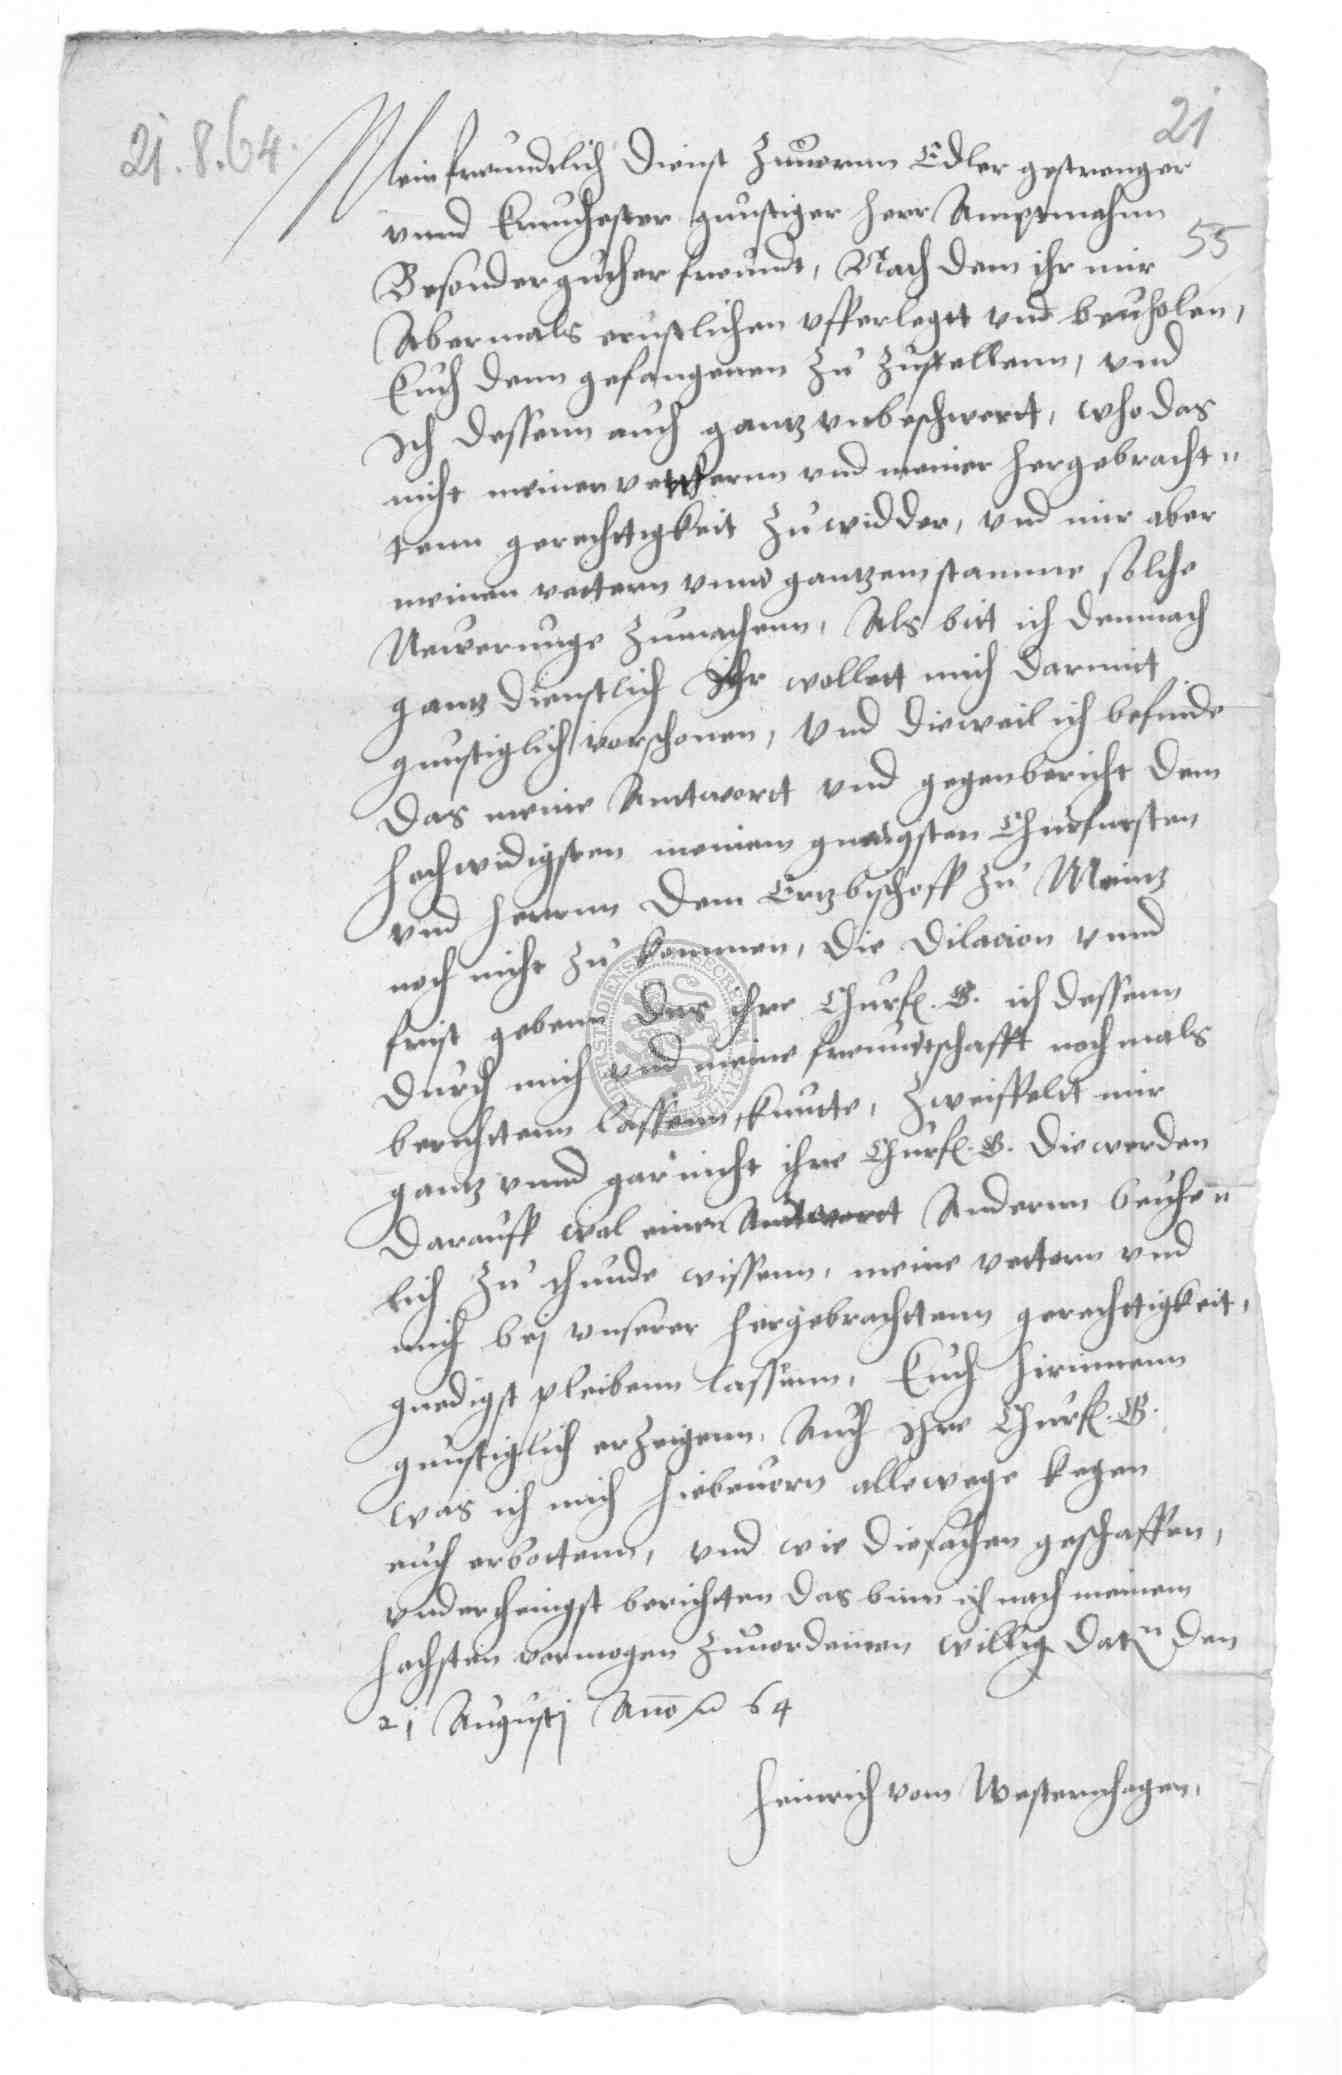 21.8.64.
21
55
Mein freundtlich dienst zuuornn Edler gestrenger
vnnd Ernuhester gunstiger herr Amptmahnn
Besonder guther freundt, Nach dem ihr mir
Abermals ernstlichen vfferlegtt vnd beuholen,
Euch denn gefangenen zu zustellenn, vnd
Ich dessenn auch gantz vnbeschwert, who das
nicht meinen vetternn vnd meiner hergebracht-
tenn gerechttigkeit zu widder, vnd mir aber
meinen vettern vnnd gantzem stamme solche
Newerunge zumachenn, Als bitt ich demnach
gantz dienstlich Ihr wollett mich darmitt
gunstiglich vorschonen, Vnd dieweil ich befinde
das meine Antwortt vnd gegenbericht dem
hochwirdigsten meinem gnedigsten Churfursten
vnd herrnn dem Ertzbischoff zu Meintz
noch nicht zu kommen, die dilacion vnnd
frist gebenn das ihre Churf. G. ich dessenn
durch mich vnd meine freundtschafft nochmals
berichttenn lassenn kunte, zweiffelt mir
gantz vnnd gar nicht ihre Churf. G. die werden
darauff wol einen Andernn beuhe-
lich zu thunde wissenn, meine vettern vnd
mich bej vnserer hergebrachttenn gerechttigkeit,
gnedigst pleibenn lassenn, Euch hirinnenn
gunstiglich erzeigenn, Auch ihre Churf. G.
was ich mich hiebeuorn allewege kegen
euch erbottenn, vnd wie die sachen geschaffen,
vnderthenigst berichtten das binn ich nach meinem
hochsten vermogen zuuordienen willig Dat. den
21 Augustj Anno 64
Heinrich vom Westernhagen,